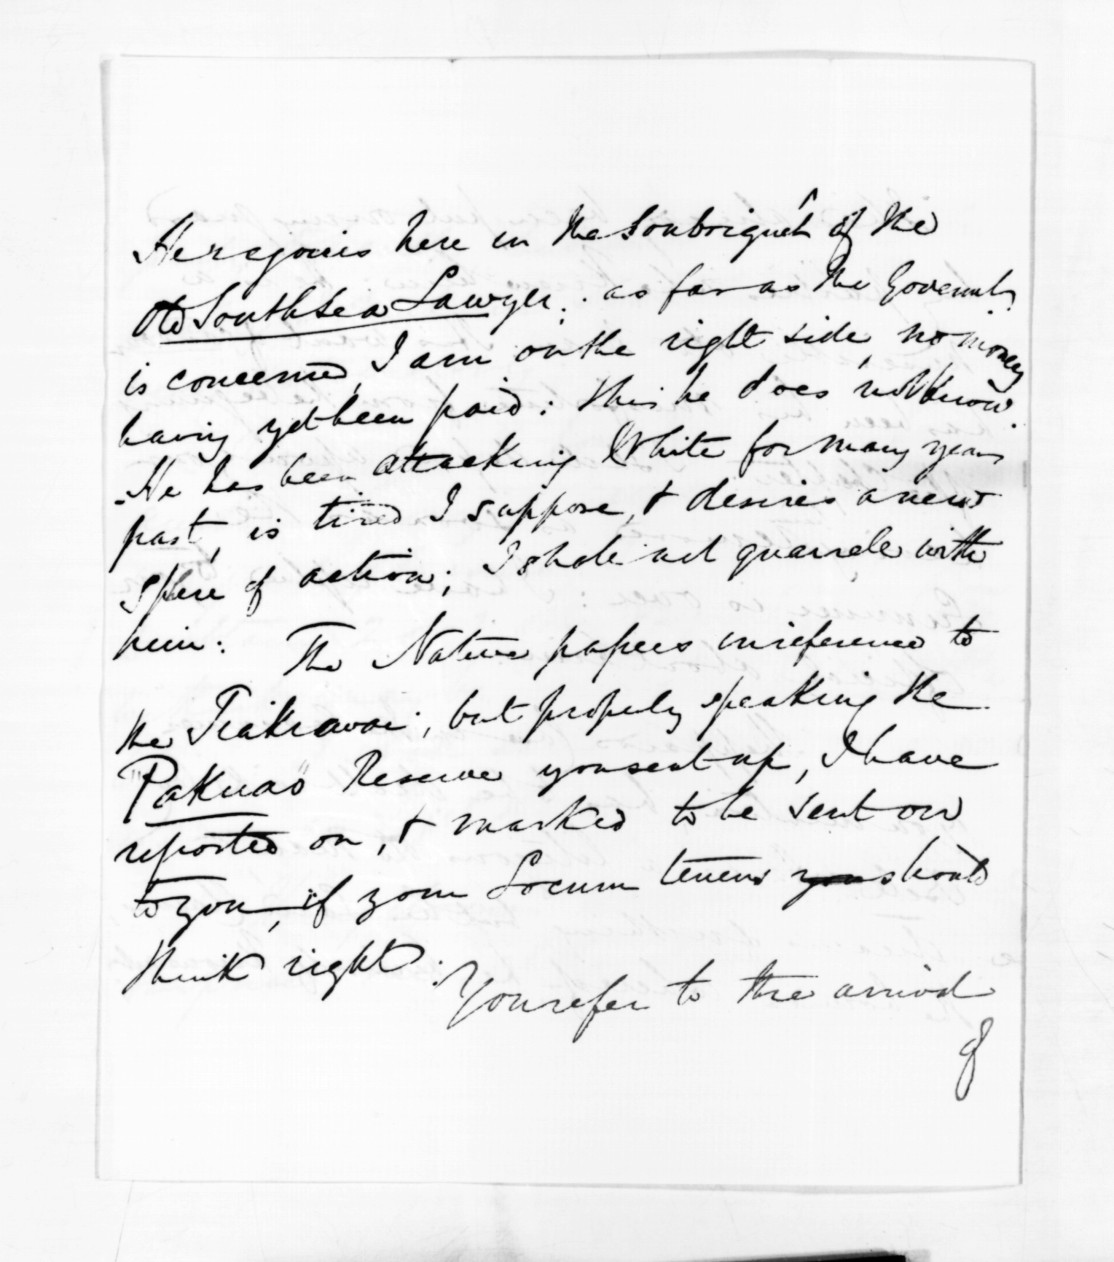 He rejoices here in the Soubriquet of the
Old South Sea Lawyer. as far as the Governmt.
is concerned, I am on the right side, no money
having yet been paid: this he does not know.
He has been attacking White for many years
past, is tired I suppose, & desires a new
sphere of action; I shall not quarrel with
him. The Native papers in reference to
the ; but properly speaking the
"Pakuao" Reserve you sent up, I have
reported on, & marked to be sent on
to you, if your Locum tenens you should
think right. You refer to the arrival
of